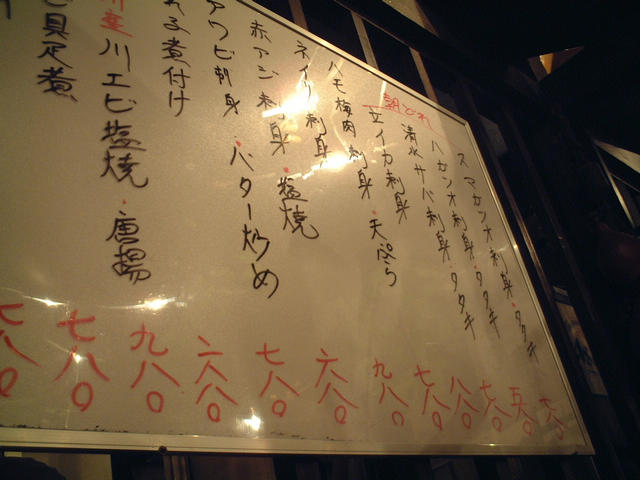 スマカツオ刺身・タタキ
ハガツオ刺身・タタキ
清水サバ刺身・タタキ
朝どれ
立イカ刺身・天ぷら
ハモ梅肉
刺身
ネイリ刺身・塩焼
赤アジ刺身
アワビ刺身・バター炒め
煮付け
川エビ塩焼・唐揚
具足煮
五八〇
七八〇
八八〇
七八〇
九八〇
六八〇
七八〇
一六八〇
九八〇
七八〇
七八〇